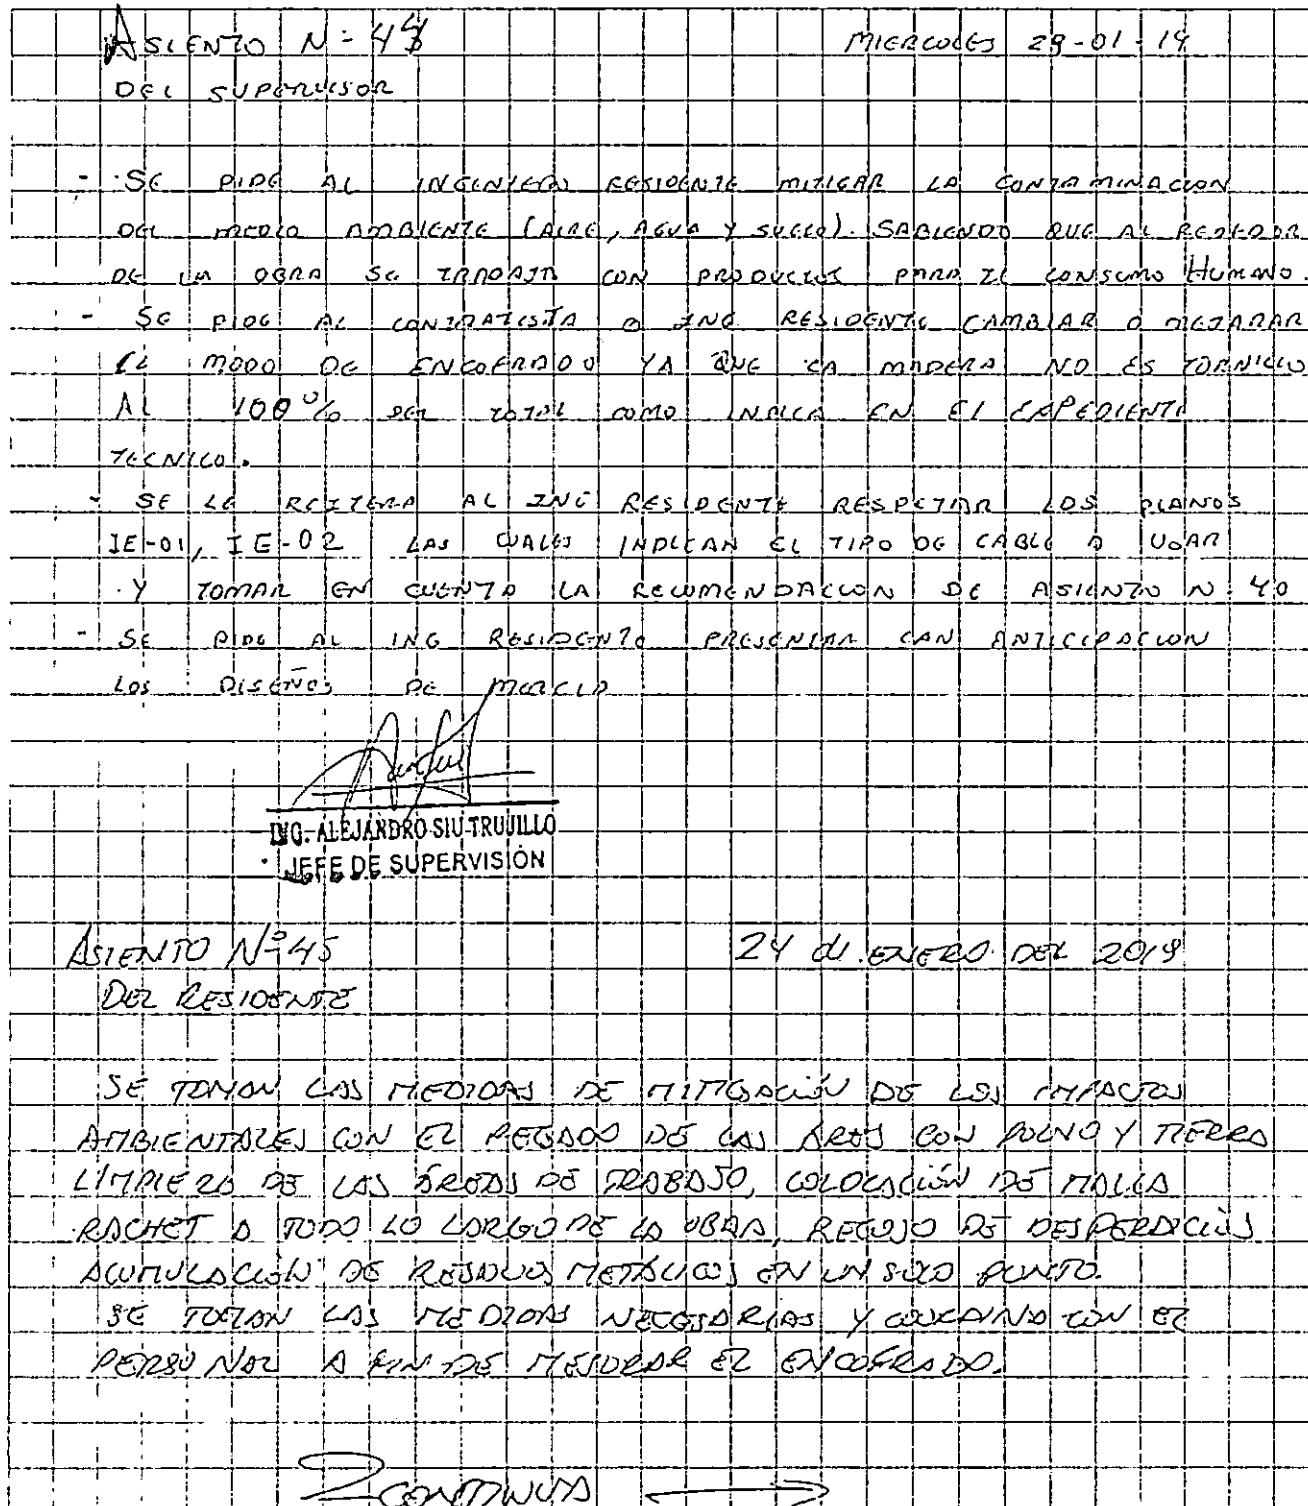 ASIENTO N= 44 MIERCOLES 29-01-19
DEL SUPERVISOR
- SE PIDE AL INGENIERO RESIDENTE MITIGAR LA CONTAMINACION
DEL MEDIO AMBIENTE (AIRE, AGUA Y SUELO). SABIENDO QUE AL REDEDOR
DE LA OBRA SE TRABAJA CON PRODUCTOS PARA EL CONSUMO HUMANO.
- SE PIDE AL CONTRATISTA O ING RESIDENTE CAMBIAR O MEJARAR
EL MODO DE ENCOFRADO YA QUE LA MADERA NO ES TORNILLO
AL 100% DEL TOTAL COMO INDICA EN EL EXPEDIENTE
TECNICO.
- SE LE REITERA AL ING RESIDENTE RESPETAR LOS PLANOS
IE-01, IE-02 LAS CUALES INDICAN EL TIPO DE CABLE A USAR
Y TOMAR EN CUENTA LA RECOMENDACION DE ASIENTO N- 40
- SE PIDE AL ING RESIDENTE PRESENTAR CAN ANTICIPACION
LOS DISEÑOS DE MEZCLA
ING. ALEJANDRO SIU TRUJILLO
JEFE DE SUPERVISIÓN
ASIENTO Nº 45 24 de ENERO DEL 2019
DEL RESIDENTE
SE TOMAN LAS MEDIDAS DE MITIGACIÓN DE LOS IMPACTOS
AMBIENTALES CON EL REGADO DE LAS AREAS CON POLVO Y TIERRA
LIMPIEZA DE LAS ÁREAS DE TRABAJO, COLOCACIÓN DE MALLA
RACHET A TODO LO LARGO DE LA OBRA, RECOJO DE DESPERDICIOS
ACUMULACIÓN DE RESIDUOS METÁLICOS EN UN SOLO PUNTO.
SE TOMAN LAS MEDIDAS NECESARIAS Y COORDINA CON EL
PERSONAL A FIN DE MEJORAR EL ENCOFRADO.
CONTINUA